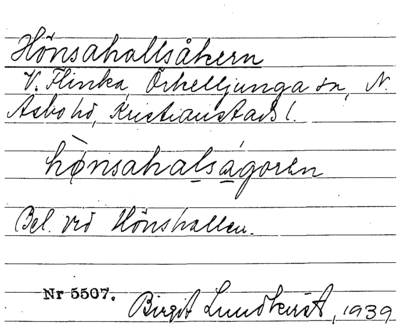 Hönsahallsåkern
V. Flinka, Örkelljunga sn, N.
Åsbo hd, Kristianstads l.
hǿnsahalságoren
Bel. vid Hönshallen.
Nr 5507.
Birgit Lundkvist, 1939